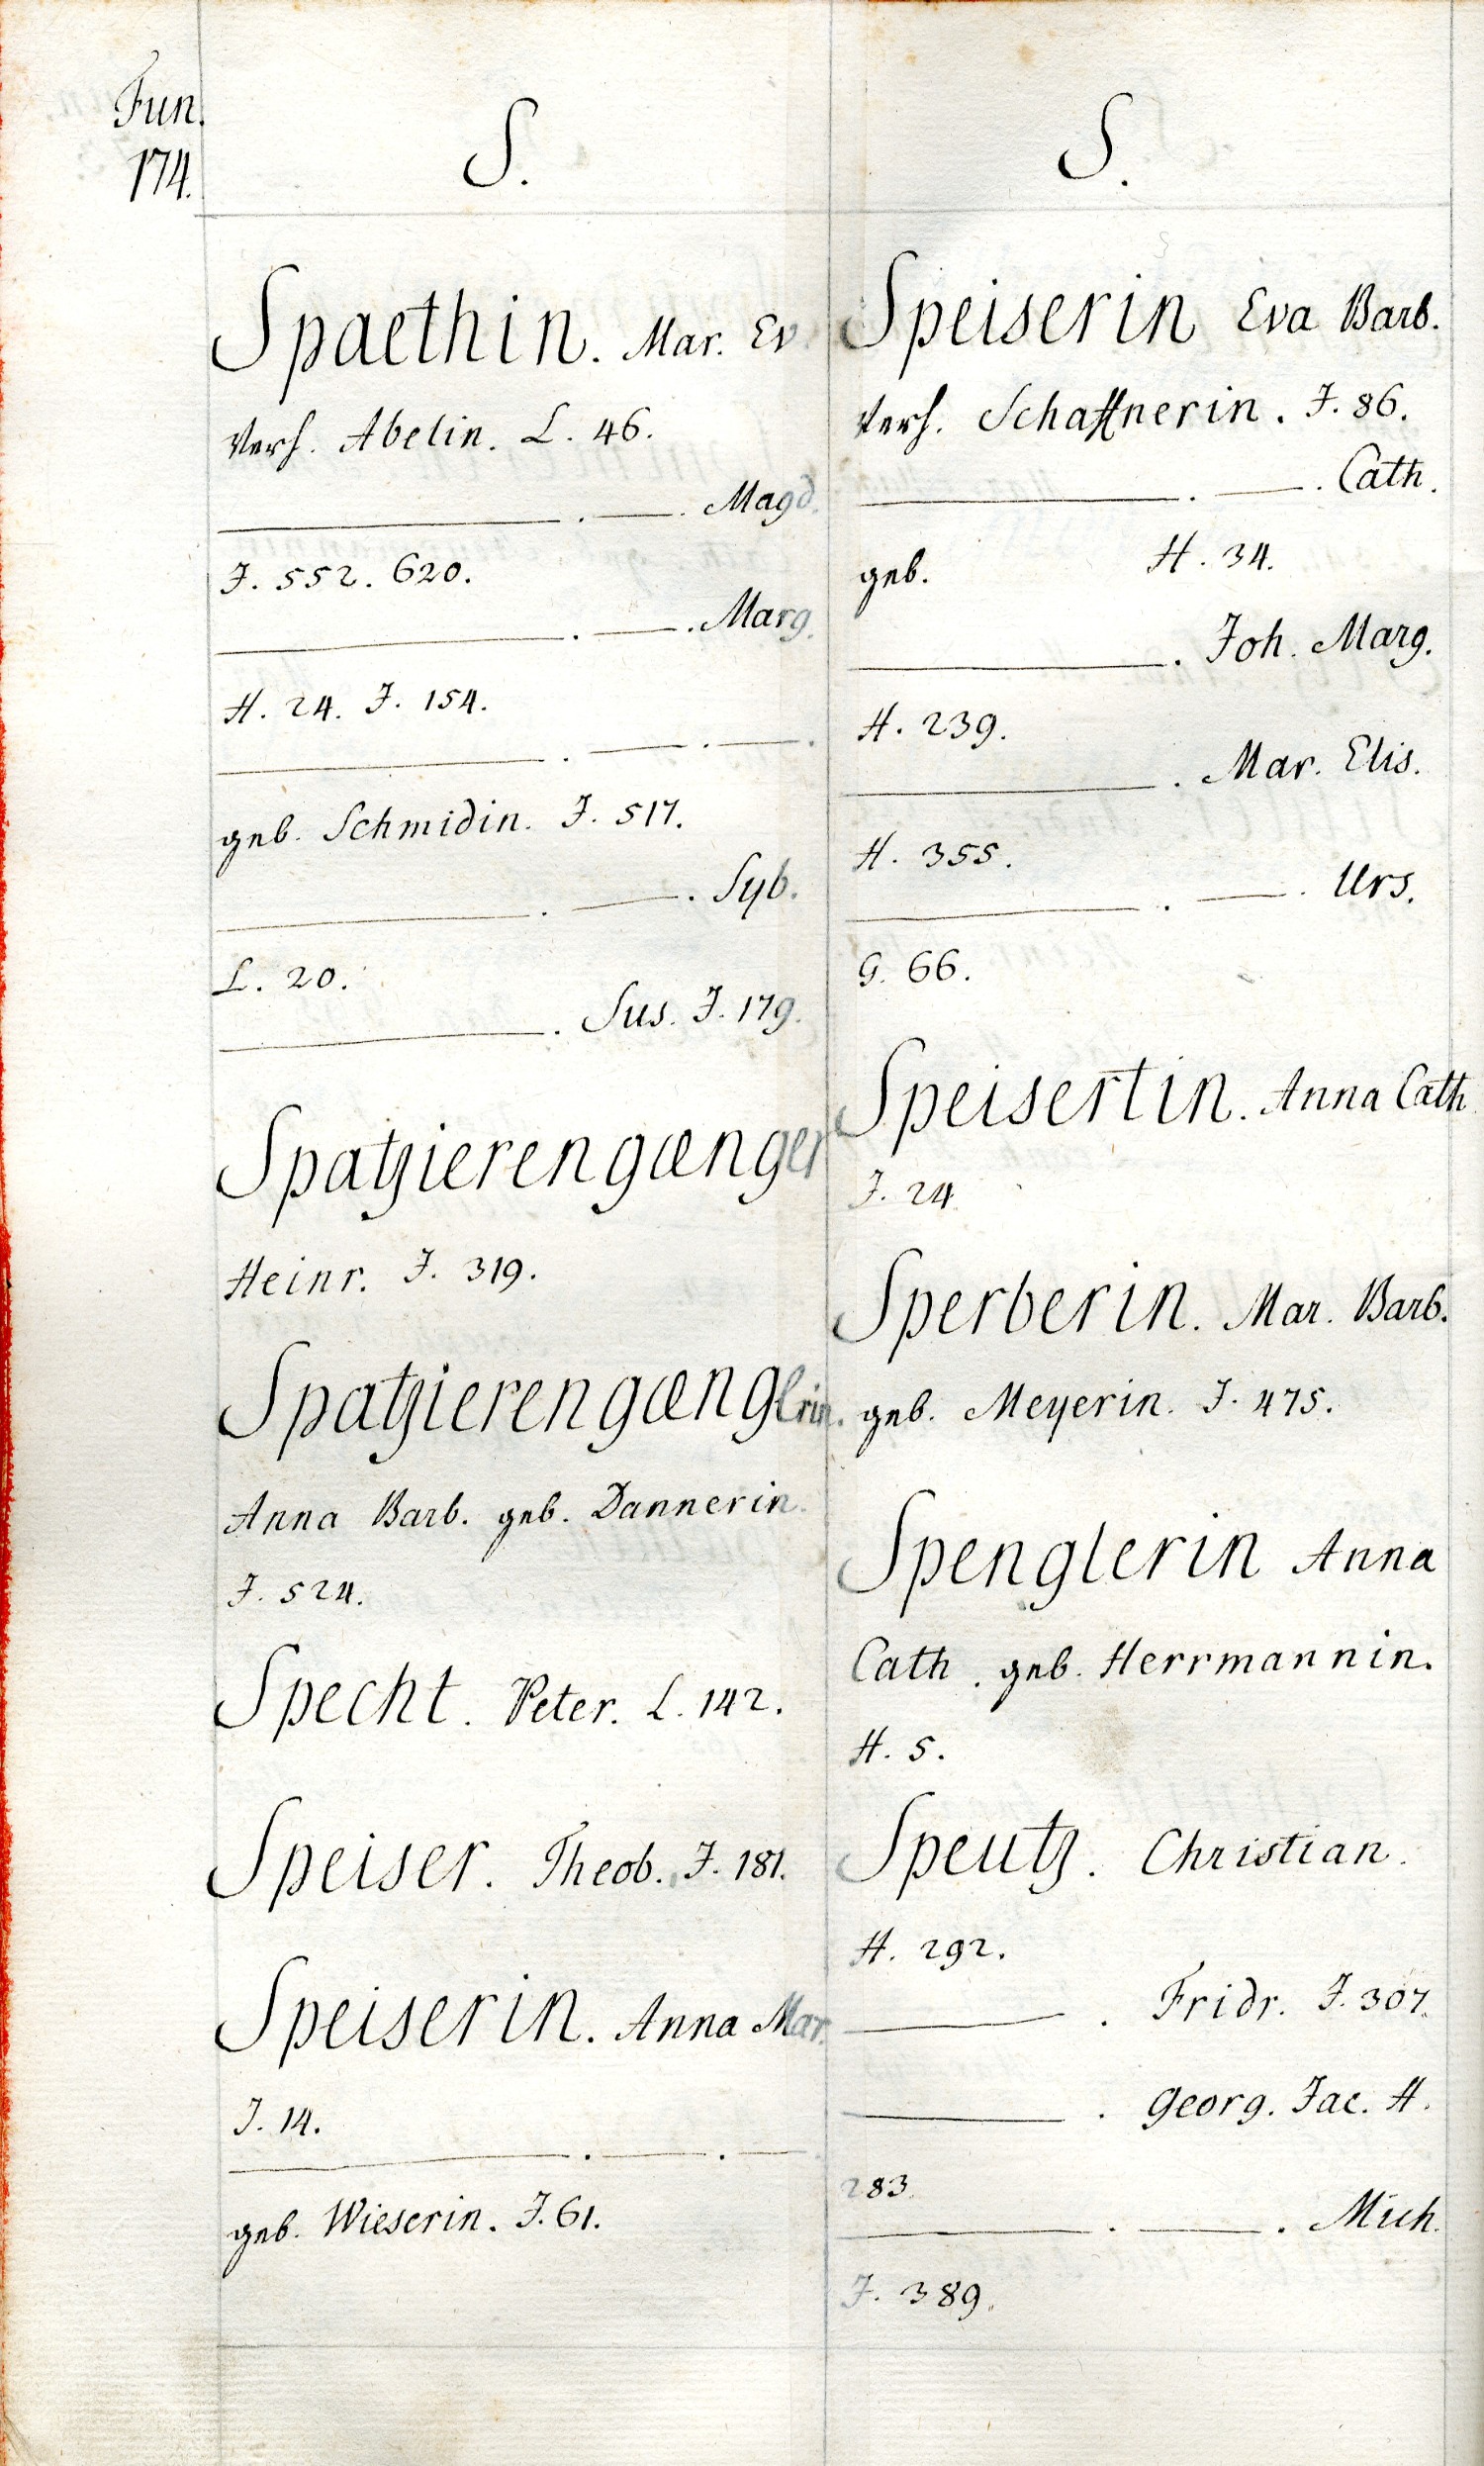 Fun.
174.
S.
Spaethin. Mar. Ev.
Verh. Abelin. L. 46.
——. ——. Magd.
J. 552. 620.
——. ——. Marg.
H. 24. J. 154.
——. ——. ——.
geb. Schmidin. J. 517.
——. ——. Syb.
L. 20.
——. Sus. J. 179.
Spatzierengænger
Heinr. J. 319.
Spatzierengænglrin.
Anna Barb. geb. Dannerin.
J. 524.
Specht. Peter. L. 142.
Speiser. Theob. J. 181.
Speiserin. Anna Mar.
J. 14.
——. ——. ——.
geb. Wieserin. J. 61.
S.
Speiserin Eva Barb.
Verh. Schaffnerin. J. 86.
——. ——. Cath.
geb. H. 34.
——. Joh. Marg.
H. 239.
——. Mar. Elis.
H. 355.
——. ——. Urs.
G. 66.
Speisertin. Anna Cath
J. 24.
Sperberin. Mar. Barb.
geb. Meyerin. J. 475.
Spenglerin Anna
Cath. geb. Herrmannin.
H. 5.
Speutz. Christian.
H. 292.
——. Fridr. J. 307.
——. Georg. Jac. H.
283.
——. ——. Mich.
J. 389.